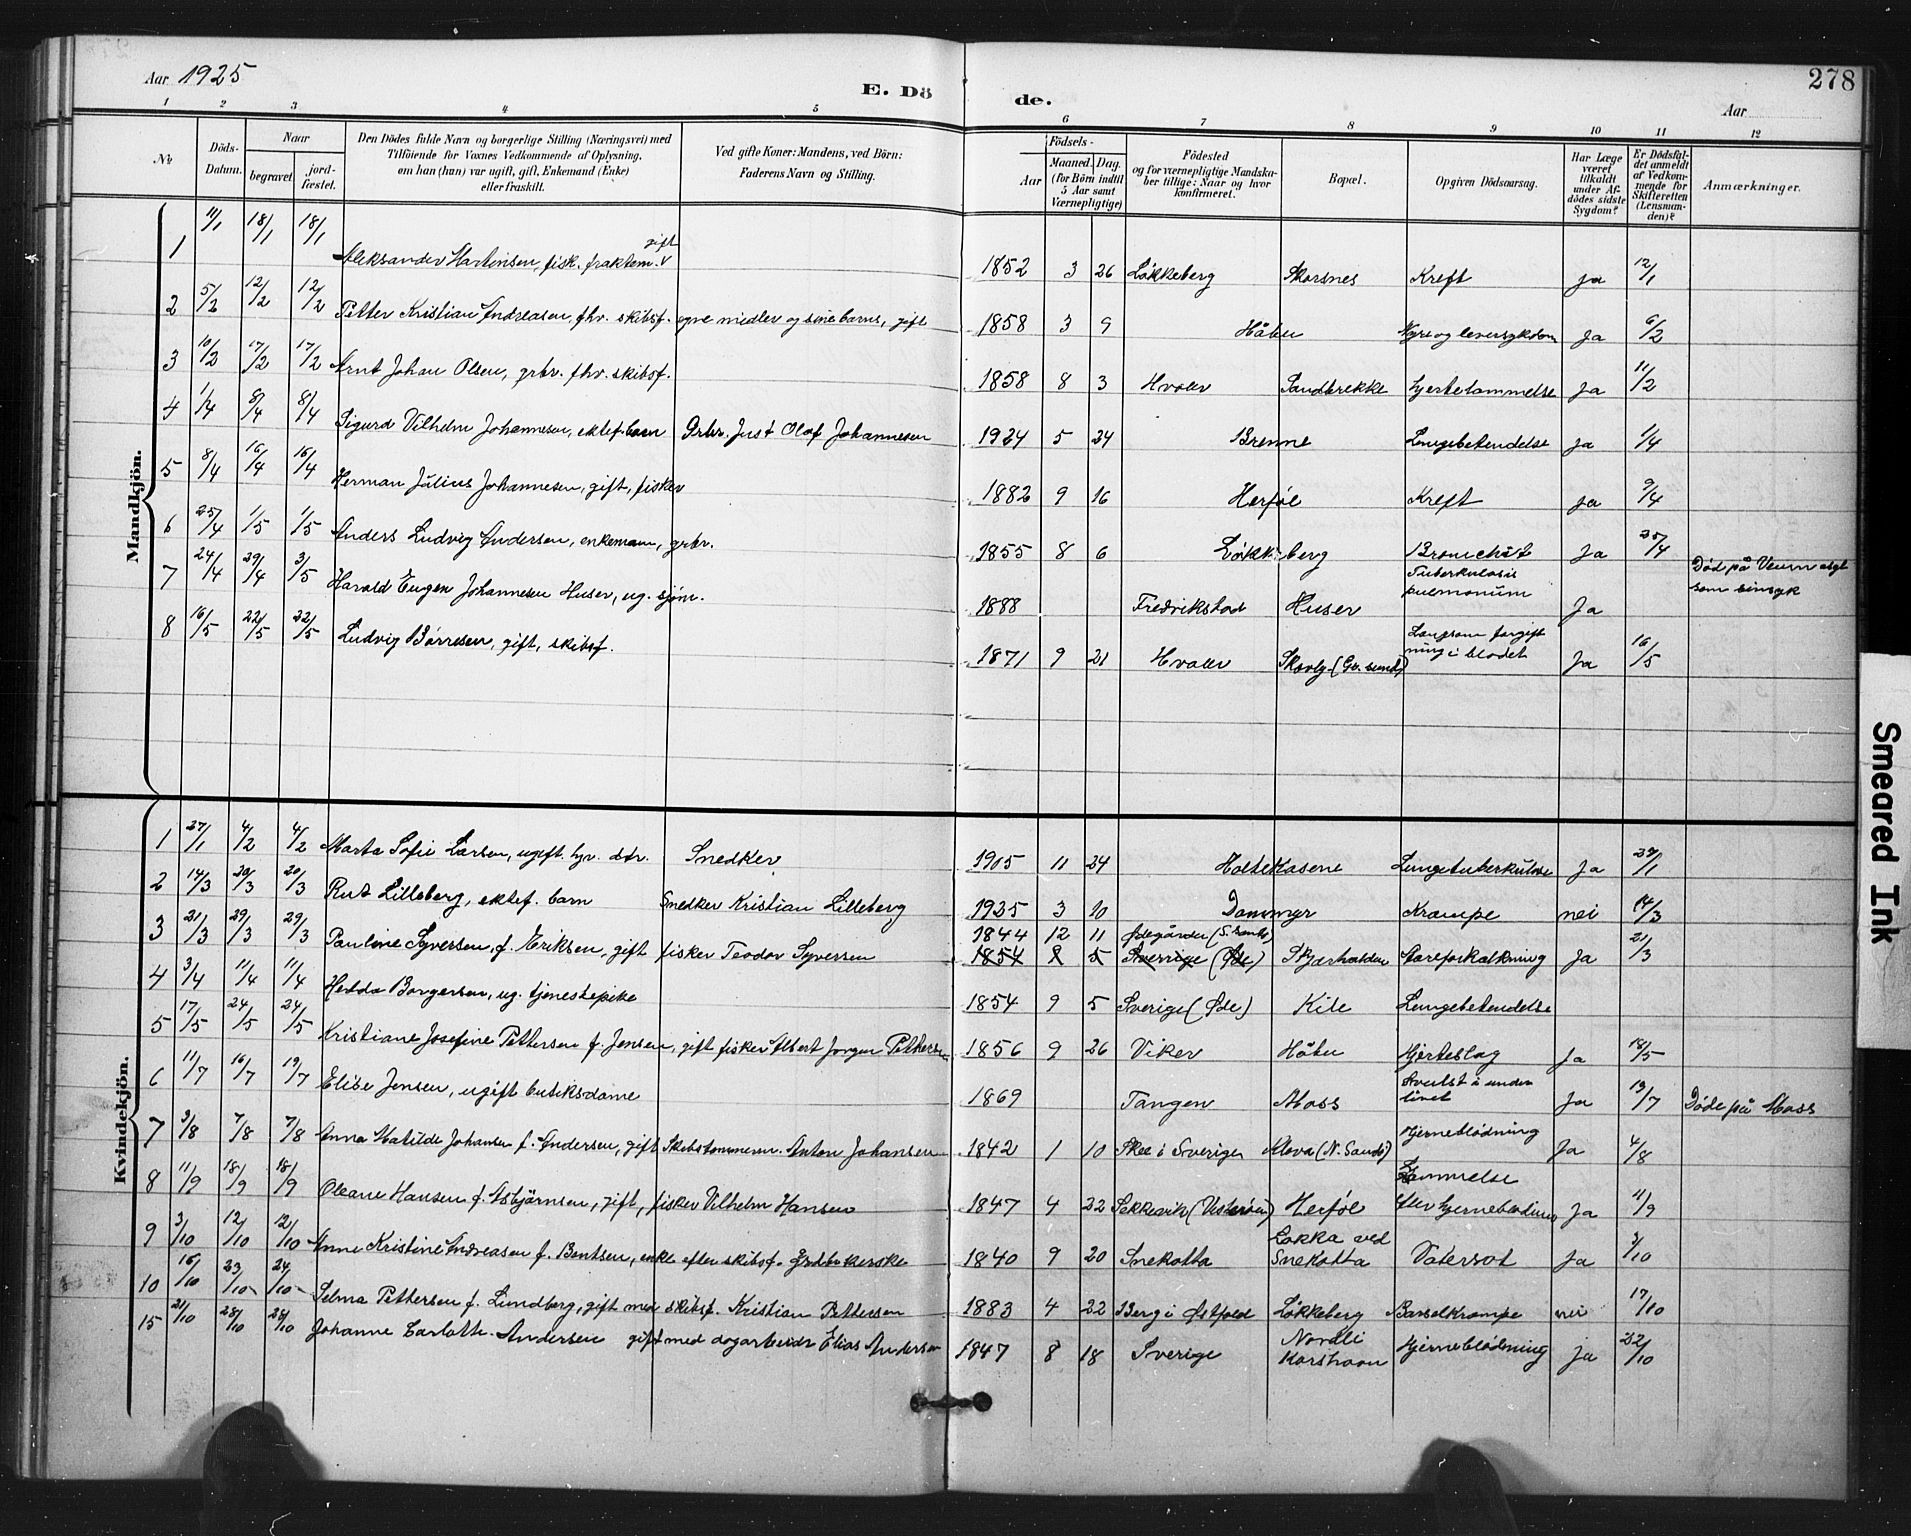 Aar 1925
E. Dö
de.
Aar
278
1 2 3 4 5 6 7 8 9 10 11 12
№
Döds-Datum.
Naar
begravet.
jord-fæstet.
Den Dödes fulde Navn og borgerlige Stilling (Næringsvei) med
Tilföiende for Voxnes Vedkommende af Oplysning,
om han (hun) var ugift, gift, Enkemand (Enke)
eller fraskilt.
Ved gifte Koner: Mandens, ved Börn:
Faderens Navn og Stilling.
Födsels-
Aar
Maaned. Dag.
(for Börn indtil
5 Aar samt
Værnepligtige)
Födested
og for værnepligtige Mandska-
ber tillige: Naar og hvor
konfirmeret.
Bopæl.
Opgiven Dödsaarsag.
Har Læge
været
tilkaldt
under Af-
dödes sidste
Sygdom?
Er Dödsfal-
det anmeldt
af Vedkom-
mende for
Skifteretten
(Lensman-
den)?
Anmærkninger.
Mandkjön.
1 11/1 18/1 18/1 Aleksander Martinsen, fisk. fraktem. gift 1852 3 26 Løkkeberg Skarsnes Kreft ja 12/1
2 5/2 12/2 12/2 Petter Kristian Andreasen, fhv. skibsf. egne midler og sine barns, gift 1858 3 9 Håbu Nyre og leversykdom Ja 6/2
3 10/2 17/2 17/2 Arnt Johan Olsen, grbr. fhv. skibsf. 1858 8 3 Hvaler Sandbrekke hjertelammelse Ja 11/2
4 1/4 8/4 8/4 Sigurd Vilhelm Johannesen, ektef. barn Grbr. Just Olaf Johannesen 1924 5 24 Brenne Lungebetendelse ja 1/4
5 8/4 16/4 16/4 Herman Julius Johannesen, gift, fisker 1882 9 16 Herføl Kreft ja 9/4
6 25/4 1/5 1/5 Anders Ludvig Andersen, enkemann, grbr. 1855 8 6 Løkkeberg Bronchit Ja 25/4
7 24/4 29/4 3/5 Harald Eugen Johannesen Huser, ug. sjøm. 1888 Fredrikstad Huser Tuberkulosis pulmonum Ja Død på Veum asyl som sinsyk
8 16/5 22/5 22/5 Ludvig Børresen, gift, skibsf. 1871 9 21 Hvaler Skovly (Gr. sund) Langsom forgiftning i blodet Ja 16/5
Kvindekjön.
1 27/1 4/2 4/2 Marta Sofie Larsen, ugift hjv. dtr. Snedker 1905 11 24 Holtekasene Lungetuberkulose Ja 29/1
2 14/3 20/3 20/3 Rut Lilleberg, ektef. barn Snedker Kristian Lilleberg 1925 3 10 Dammyr Krampe nei 14/3
3 21/3 29/3 29/3 Pauline Syversen, f. Eriksen, gift fisker Teodor Syversen 1844 12 11 Ødegården (S. Sandø) 1854 9 5 Sverrige (Øde) Skjærhalden Aareforkalkning Ja 21/3
4 3/4 11/4 11/4 Hedda Borgersen, ug. tjenestepike 1854 9 5 Sverige (Øde) Kile Lungebetendelse
5 17/5 24/5 24/5 Kristiane Josefine Pettersen f. Jensen, gift fisker Albert Jørgen Pettersen 1856 9 26 Viker Håbu Hjerteslag Ja 18/5
6 11/7 16/7 19/7 Elise Jensen, ugift butiksdame 1869 Tangen Moss Svulst i underlivet Ja 13/7 Døde på Moss
7 3/8 7/8 7/8 Anna Matilde Johansen f. Andersen, gift Skibstømmerm. Anton Johansen 1842 1 10 Skee i Sverige Kleva (N. Sandø) Hjerneblødning Ja 4/8
8 11/9 18/9 18/9 Oleane Hansen f. Asbjørnsen, gift, fisker Vilhelm Hansen 1847 4 22 Sekkevik (Vesterøen) Herføl Lammelse efter hjerneblødning Ja 11/9
9 3/10 12/10 12/10 Anne Kristine Andreasen f. Bentsen, enke efter skibsf. 1840 9 20 Snekotta Løkka ved Snekotta Vatersot Ja 3/10
10 16/10 23/10 24/10 Selma Pettersen f. Lundberg, gift med skibsf. Kristian Pettersen 1883 4 22 Berg i Østfold Løkkeberg Barselkrampe nei 17/10
15 21/10 28/10 28/10 Johanne Carlotte Andersen gift med dagarbeider Elias Andersen 1847 8 18 Sverige Nordli Korshavn Hjerneblødning ja 22/10
Smeared Ink